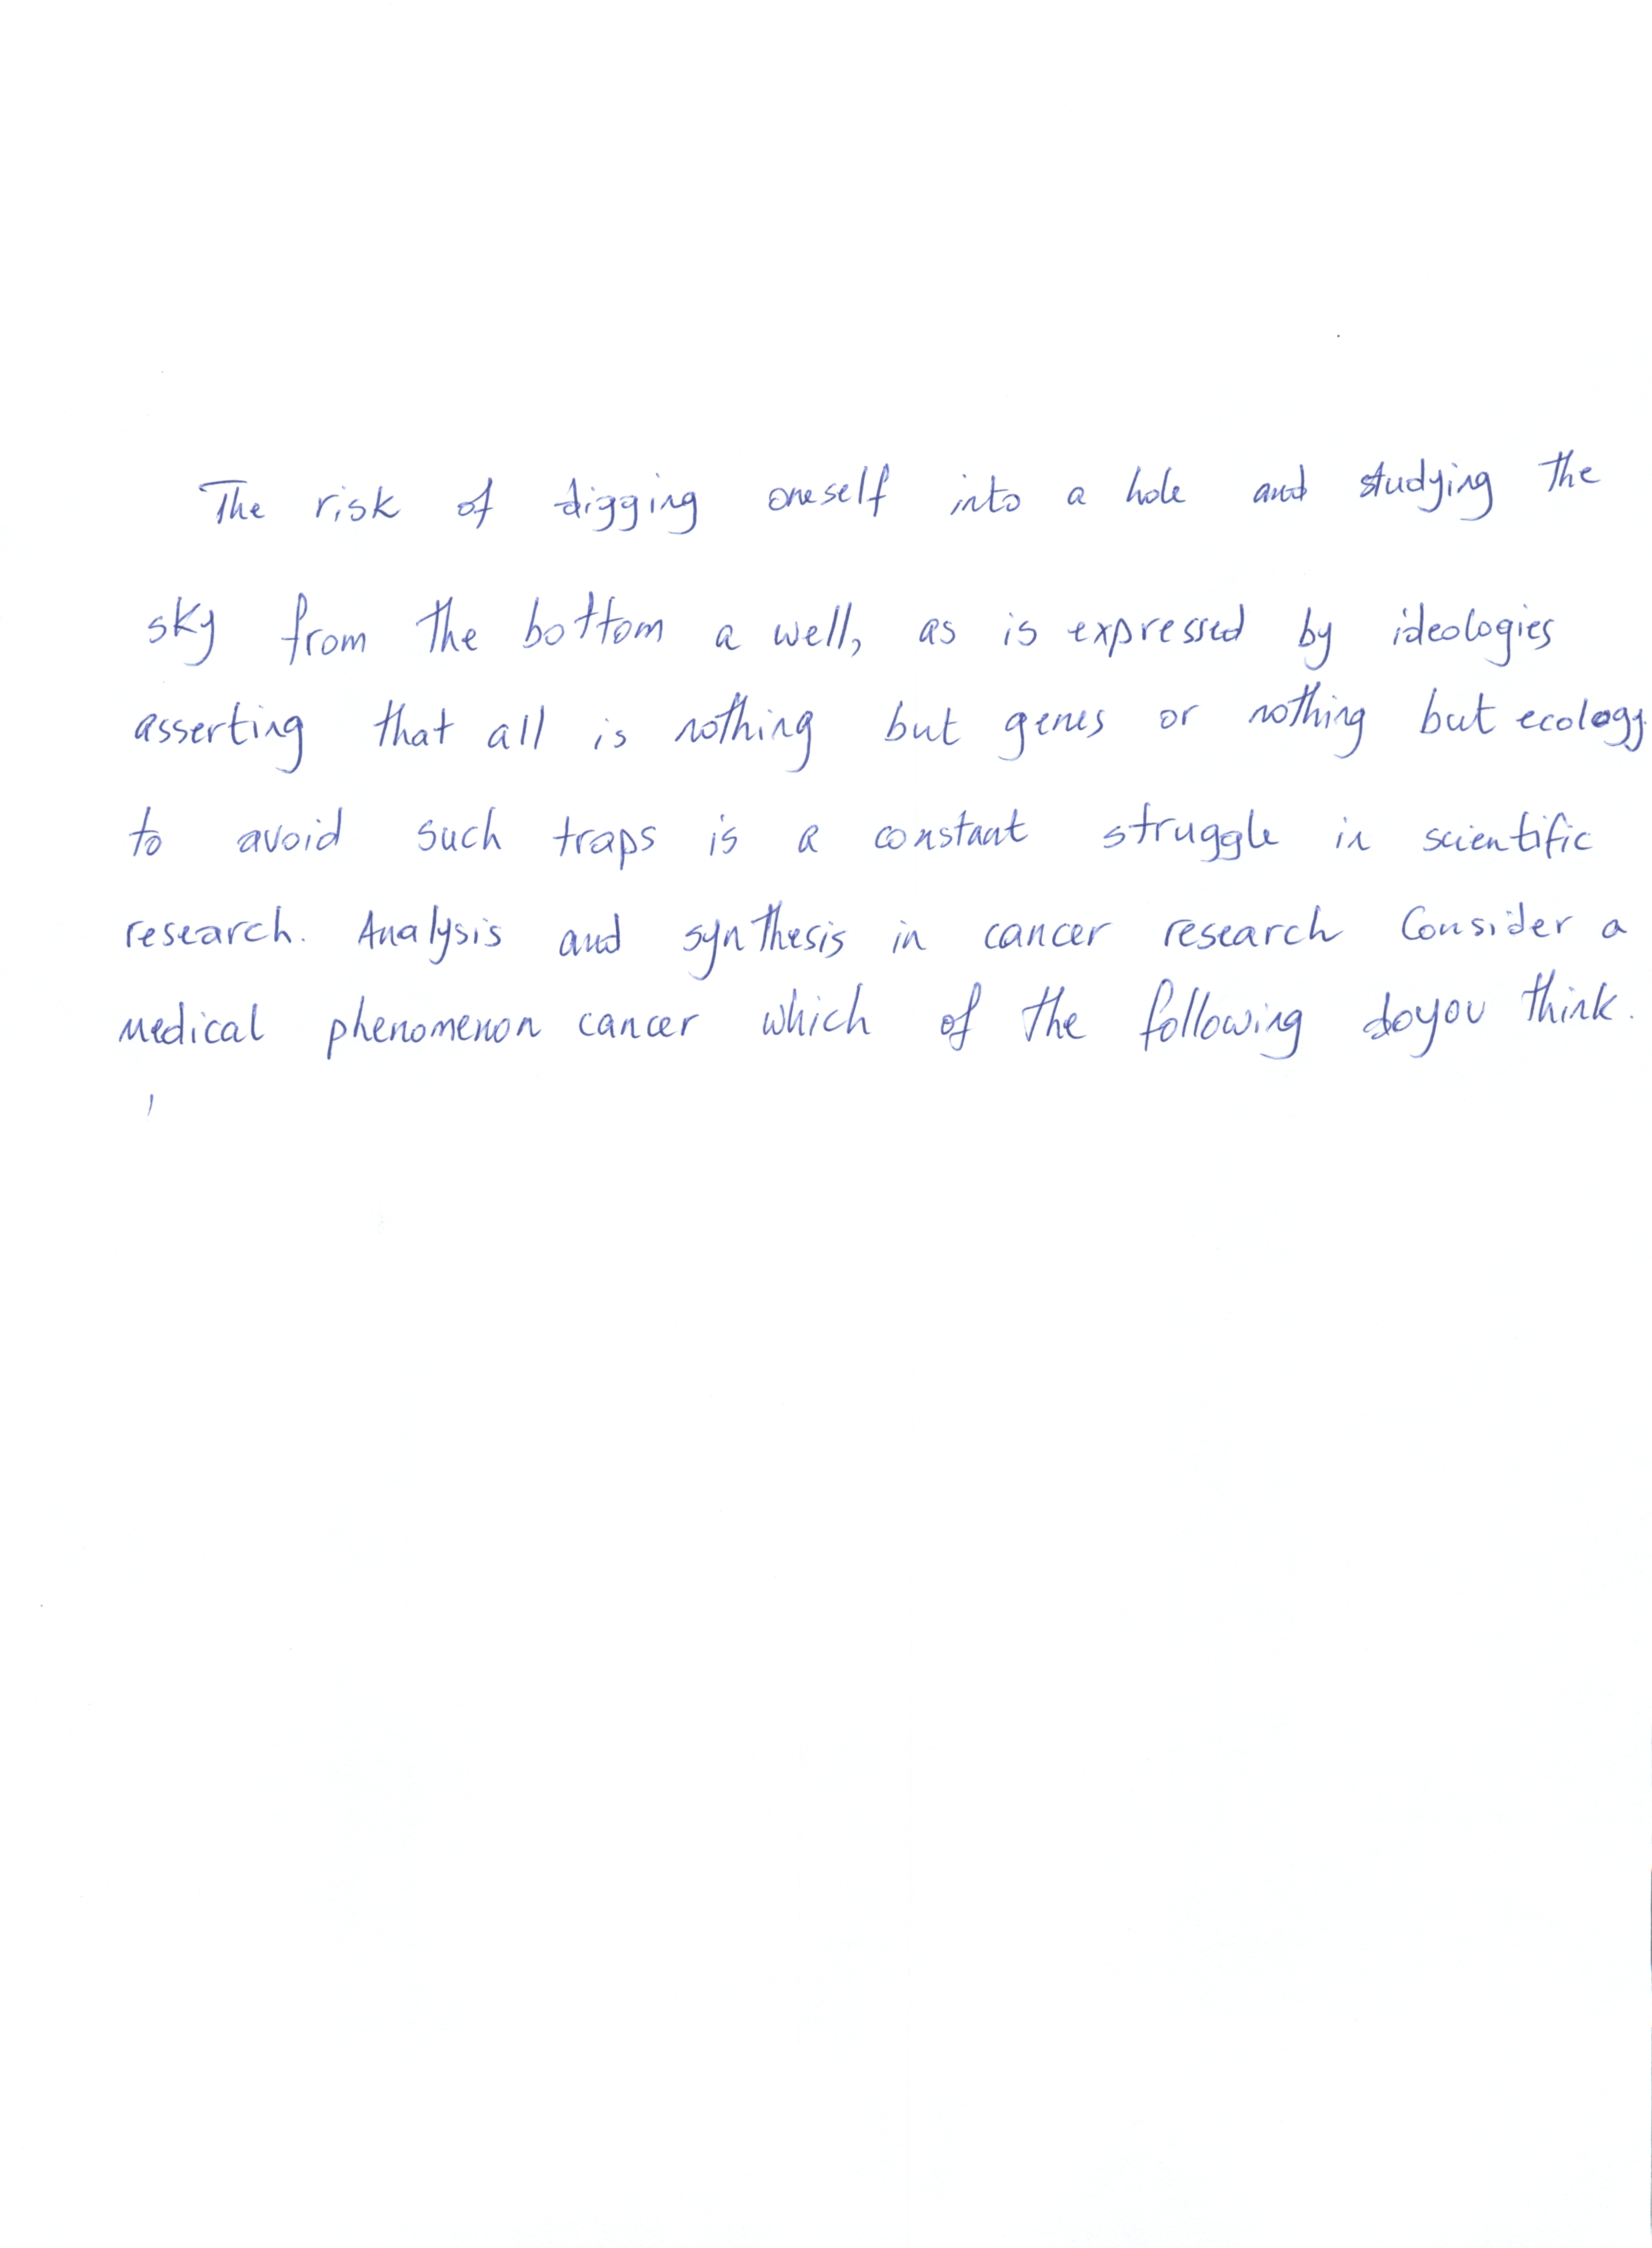 The risk of digging oneself into a hole and studying the
sky from the bottom a well, as is expressed by ideologies
asserting that all is nothing but genes or nothing but ecology.
to avoid such traps is a constant struggle in scientific
research. Analysis and synthesis in cancer research Consider a
medical phenomenon cancer which of the following doyou think.